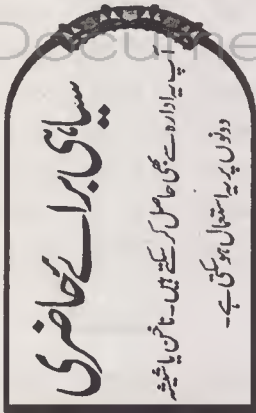 Docume
سیاہی برائے حاضری
آپ یہ ادارہ سے بھی حاصل کر سکتے ہیں۔ ناخن یا شیشہ
دونوں پر یہ استعمال ہو سکتی ہے۔